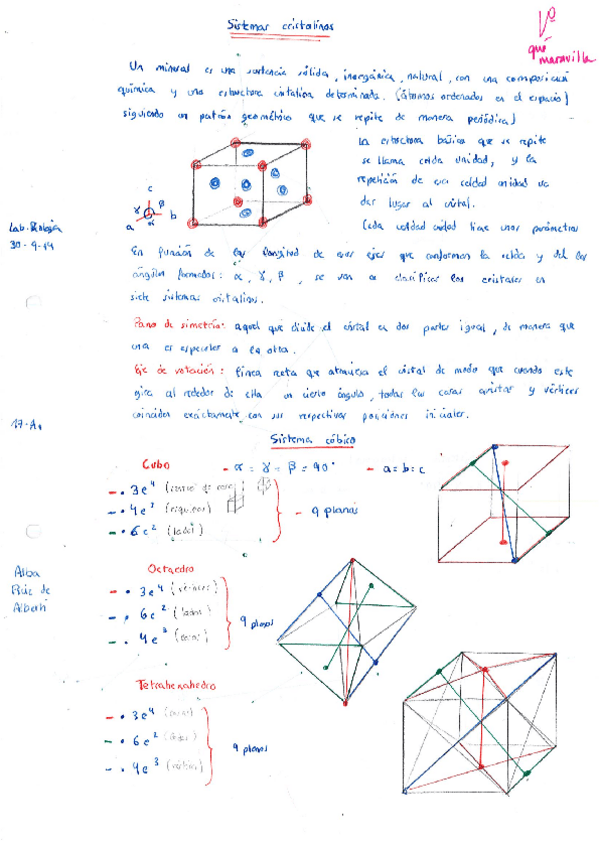 Sistemas cristalinos
Vº
qué
maravilla
Un mineral es una sustancia sólida, inorgánica, natural, con una composición
química y una estructura cristalina determinada. (átomos ordenados en el espacio)
siguiendo un patrón geométrico que se repite de manera periódica)
La estructura básica que se repite
se llama celda unidad, y la
repetición de esa celdad unidad va
dar lugar al cristal.
Cada celdad unidad tiene unos parámetros
c
γ β
a α b
Lab. Biología
30-9-14
En función de las longitud de esos ejes que conforman la celda y del los
ángulos formados: α, γ, β, se van a clasificar los cristales en
siete sistemas cristalinos.
Pano de simetría: aquel que divide el cristal en dos partes igual, de manera que
una es especular a la otra.
Eje de rotación: línea recta que atraviesa el cristal de modo que cuando este
gira al rededor de ella un cierto ángulo, todas las caras aristas y vértices
coinciden exactamente con sus respectivas posiciones iniciales.
17-A.
Sistema cúbico
Cubo - α = γ = β = 90° - a = b = c
- • 3e⁴ (centro de cara)
- • 4e³ (esquinas) - 9 planos
- • 6e² (lados)
Alba
Ruiz de
Octaedro
- • 3e⁴ (vértices)
- • 6e² (lados) 9 planos
- • 4e³ (caras)
Tetrahexahedro
- • 3e⁴ (caras)
- • 6e² (lados) 9 planos
- • 4e³ (vértices)